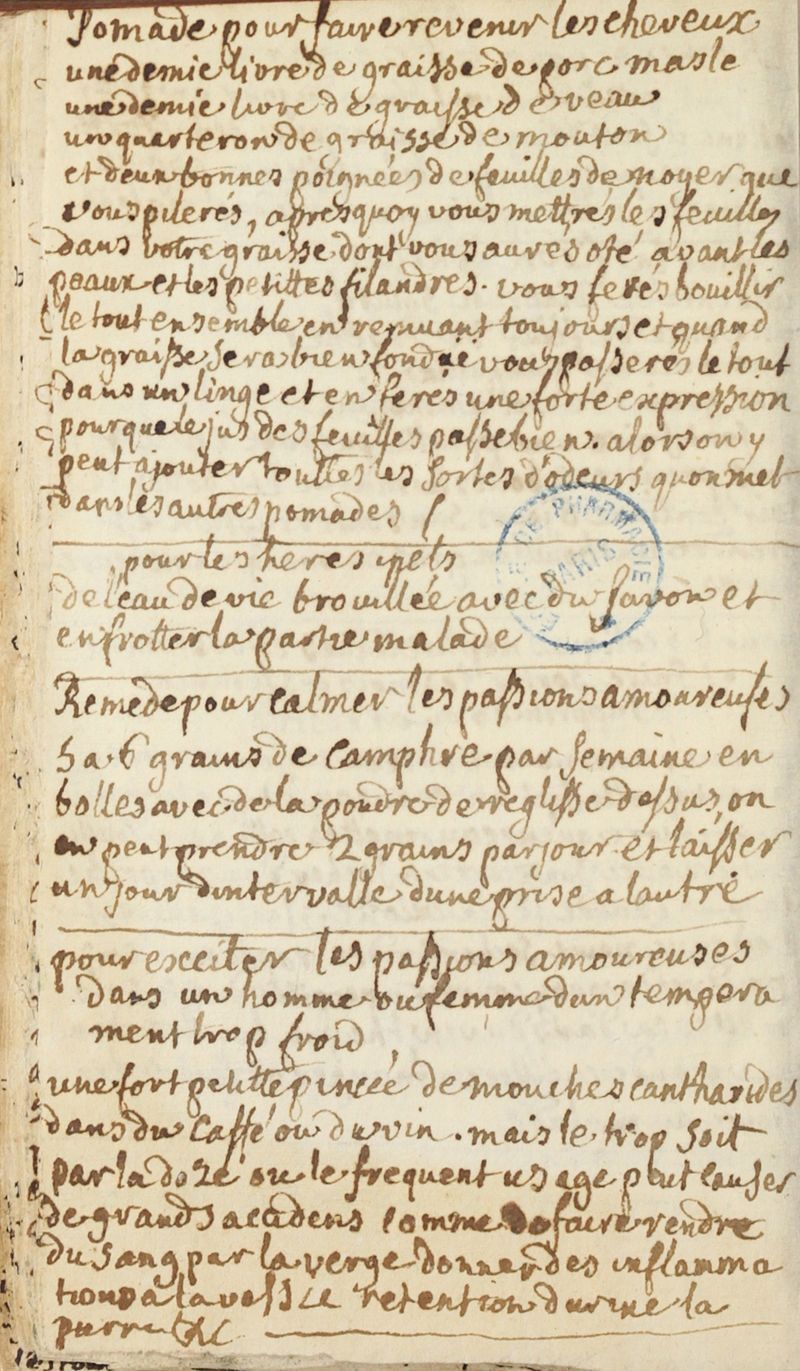 Pomade pour faire revenir les cheveux
une demie livre de graisse de porc masle
une demie livre de graisse de veau
un quarteron de graisse de mouton
et deux bonnes poignées de feuilles de noyer que
vous pilerés, apres quoy vous mettrés les feuilles
dans votre graisse dont vous aures oté avant les
peaux et les petittes filandres. vous ferés bouillir
le tout ensemble en remuant toujours et quand
la graisse sera bien fondue vous passerés le tout
dans un linge et en ferés une forte expression
pour que le jus des feuilles passe bien. alors on y
peut ajouter touttes les sortes d'odeurs quon met
dans les autres pomades
pour les heresipels
de l'eau de vie brouillée avec du savon et
en frotter la partie malade
DE PHARMACIE
PARIS
Remede pour calmer les passions amoureuses
5 a 6 grains de camphre par semaine en
bolles avec de la poudre de reglisse dessus, on
en peut prendre 2 grains par jour et laisser
un jour dintervalle dune prise a lautre
pour exciter les passions amoureuses
dans un homme ou femme dun tempera
ment trop froid,
une fort petitte pincée de mouches cantharides
dans du caffé ou du vin. mais le trop soit
par la doze ou le frequent usage peut causer
de grands accidens comme de faire rendre
du sang par la verge donner des inflamma
tions a la vessie retention durine la
pierre &c